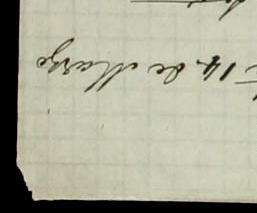 14 de Marzo